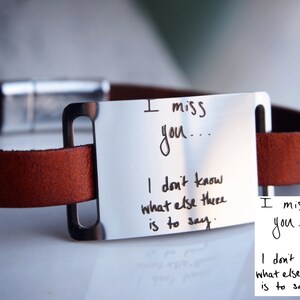 I miss
you...
I don't know
what else there
is to say.
I miss
you..
I don't
what else
is to sa